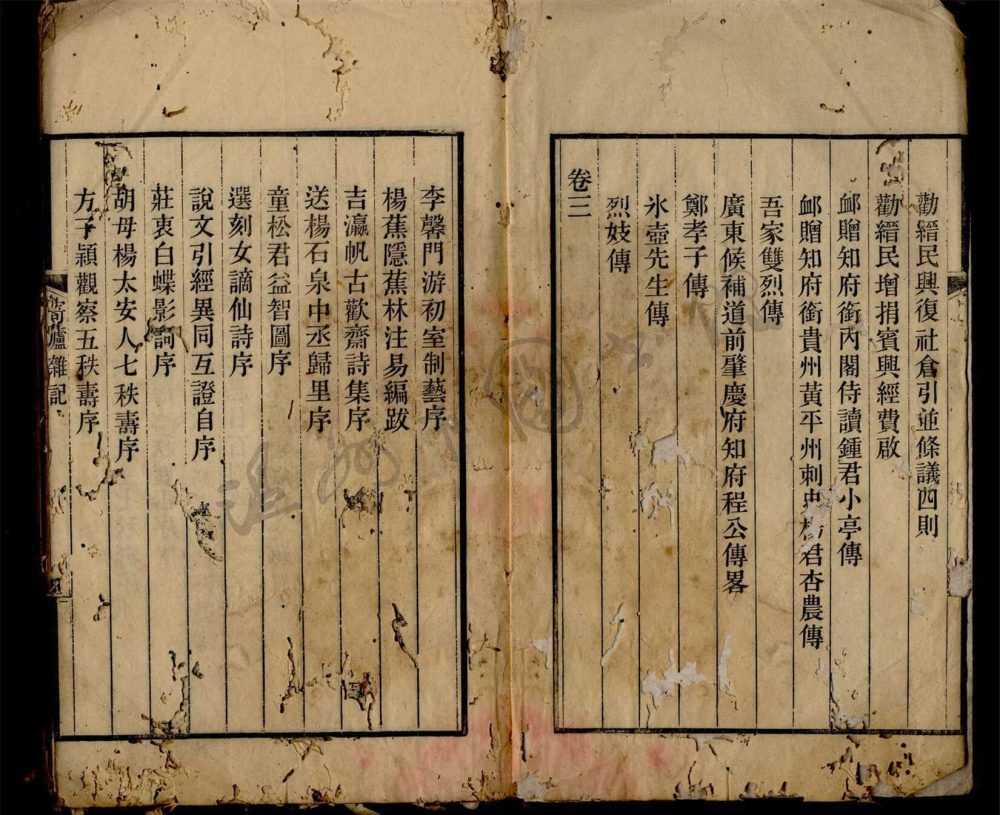 勸縉民興復社倉引並條議四則
勸縉民增捐賓興經費啟
䘏贈知府銜內閣侍讀鍾君小亭傳
䘏贈知府銜貴州黃平州刺史楊君杏農傳
吾家雙烈傳
廣東候補道前肇慶府知府程公傳畧
鄭孝子傳
氷壺先生傳
烈妓傳
卷三
李馨門游初室制藝序
楊蕉隱蕉林注易編跋
吉瀛帆古歡齋詩集序
送楊石泉中丞歸里序
童松君益智圖序
選刻女謫仙詩序
說文引經異同互證自序
莊衷白蝶影詞序
胡母楊太安人七秩壽序
方子穎觀察五秩壽序
爐雜記
溫州圖